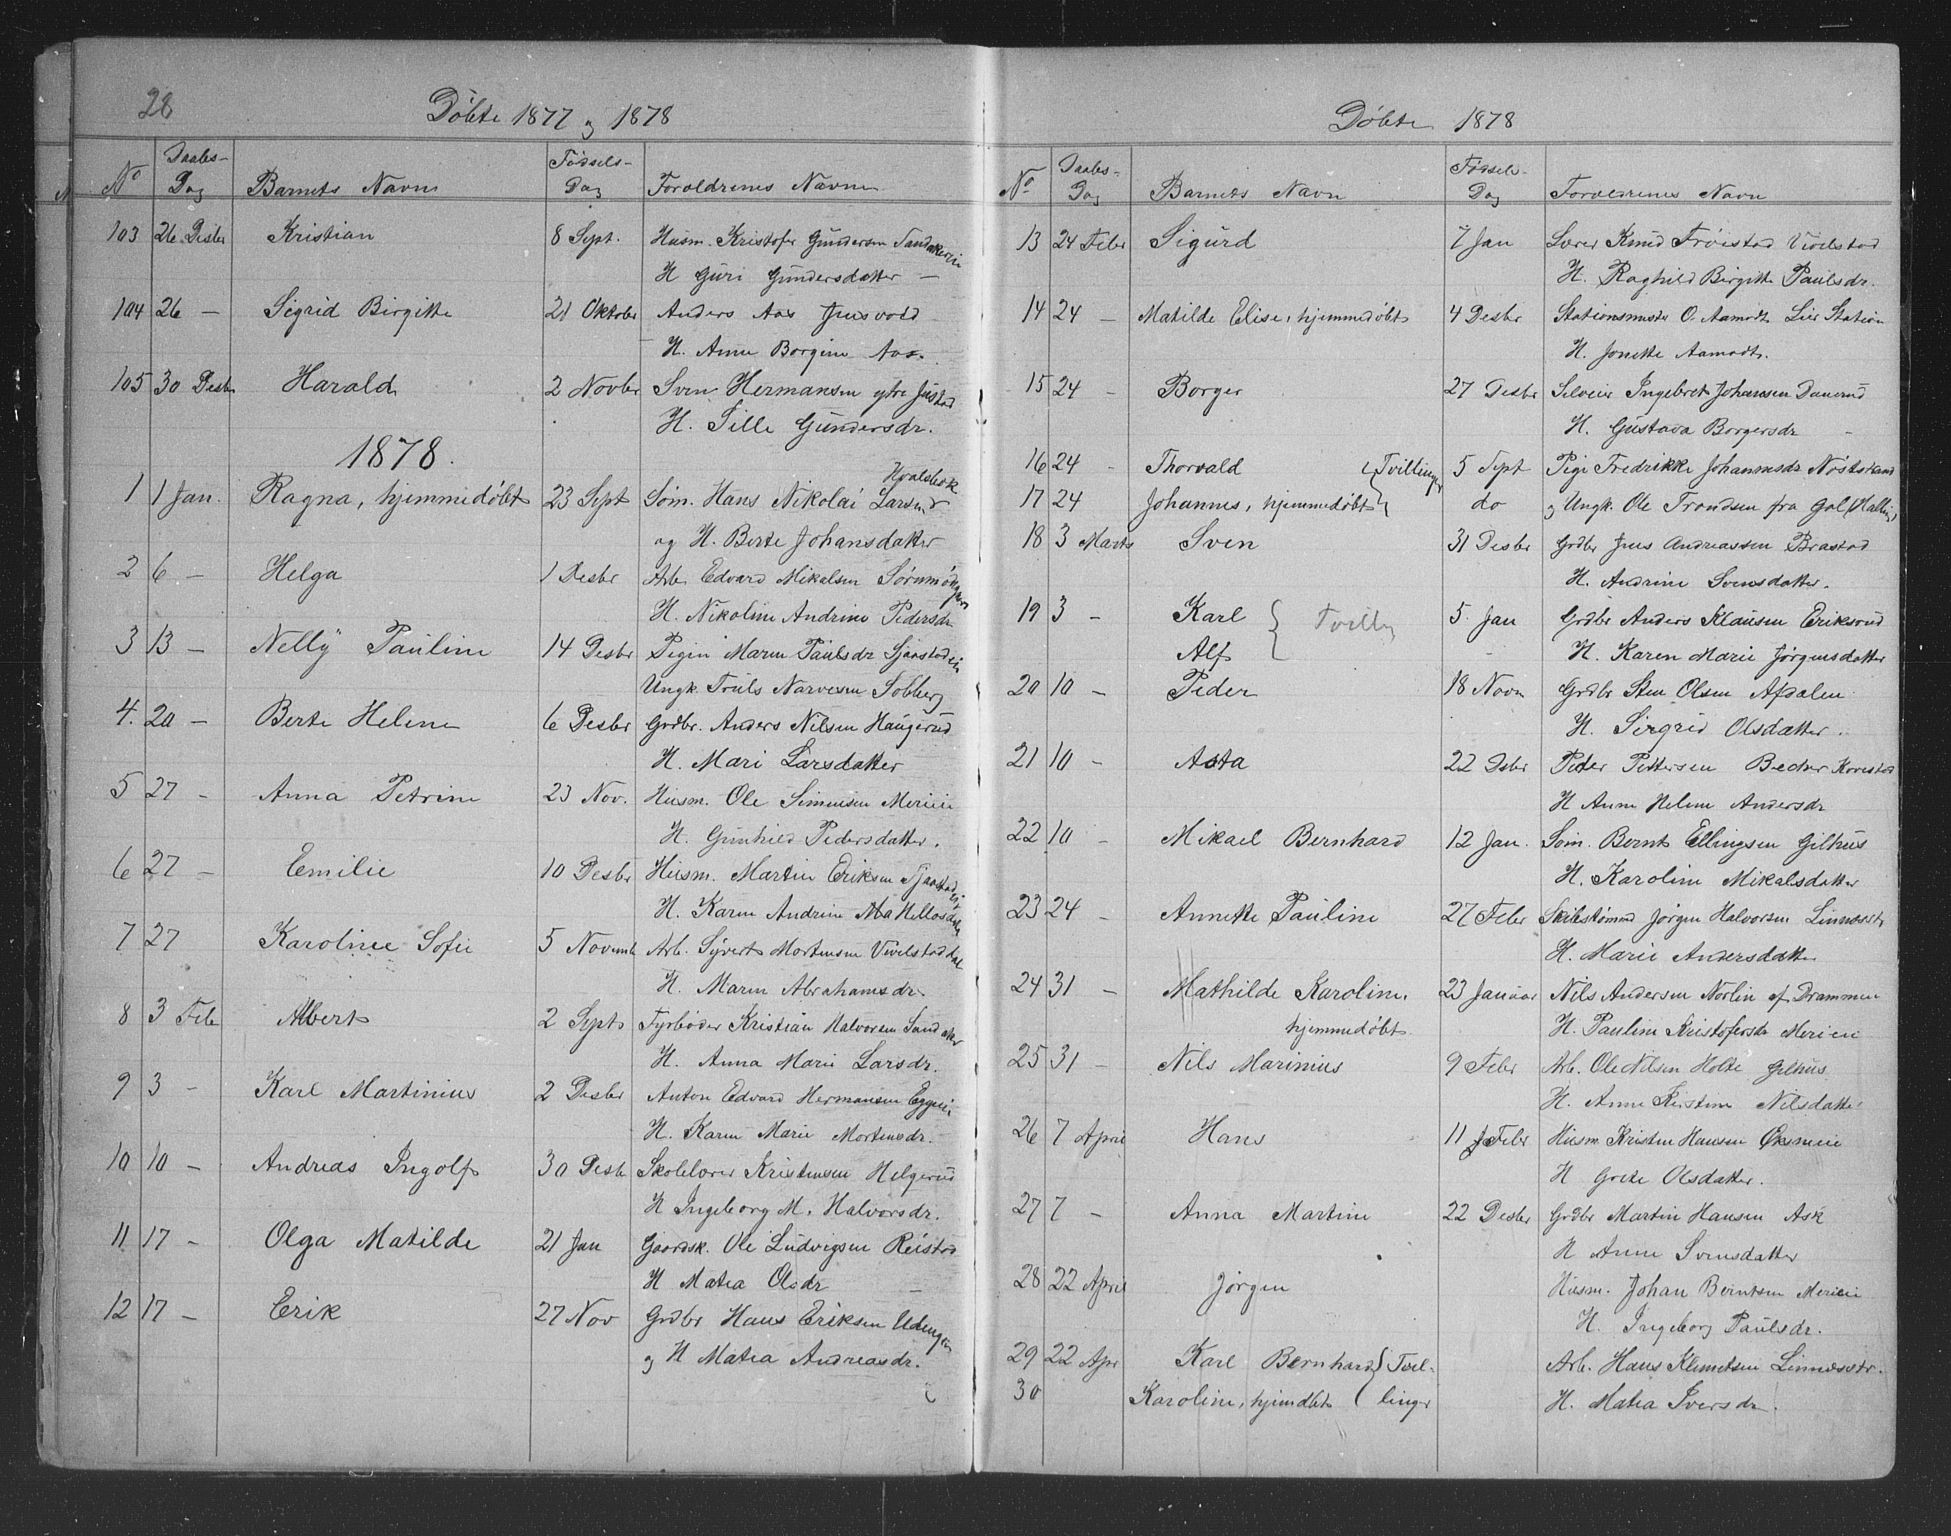 28
Döbte 1877 og 1878
No Daabs-Dag Barnets Navn Fødsels-Dag Foreldrenes Navne
103 26 Desbr Kristian 8 Sept. Husm. Kristofer Gundersen Sandakereie
H Guri Gundersdatter -
104 26 - Sigrid Birgitte 21 Oktober Anders Aas Jensvold
H. Anne Borgine Aas.
105 30 Desbr Harald 2 Novbr Sven Hermansen ytre Justad
H. Sille Gundersdr.
1878.
1 1 Jan. Ragna, hjemmedöbt 23 Sept Söm. Hans Nikolai Larsen Hvalsbok
og H. Berte Johansdatter
2 6 - Helga 1 Desbr Arb. Edvard Mikalsen
H. Nikoline Andrine Pedersdr
3 13 - Nelly Pauline 14 Desbr Pigen Maren Paulsdr Sjaastadeie
Ungk. Truls Narvesen Solberg
4. 20 - Berte Helene 6 Desbr Grdbr. Anders Nilsen Haugerud
H. Mari Larsdatter
5 27 - Anna Petrine 23 Nov. Husm. Ole Simensen Merieie
H. Gunhild Pedersdatter.
6 27 - Emilie 10 Desbr Husm. Martin Eriksen Sjaastadeie
H. Karen Andrine
7 27 Karoline Sofie 5 Novemb Arb. Syvert Mortensen Vivelstaddal
H. Maren Abrahamsdr.
8 3 Feb Albert 2 Sept Fyrböder Kristian Halvorsen Sandaker
H. Anna Marie Larsdr.
9 3 - Karl Martinius 2 Desbr Anton Edvard Hermansen Eggeie
H. Karen Marie Mortensdr.
10 10 - Andreas Ingolf 30 Desb Skolelærer Kristensen Helgerud
H Ingeborg M. Halvorsdr.
11 17 - Olga Matilde 21 Jan Gaardsk. Ole Ludvigsen Reistad
H Matea Olsdr -
12 17 - Erik 27 Nov Grdbr Hans Eriksen Udengen
og H Matea Andreasdr.
Döbte 1878
No Daabs-Dag Barnets Navn Fødsels-Dag Foreldrenes Navn
13 24 Febr Sigurd 7 Jan Lærer Knud Frøistad Vivelstad
H. Raghild Birgitte Paulsdr.
14 24 - Matilde Elise, hjemmedöbt 4 Desbr Stationsmester O. Aamodt Lier Station
H. Jonette Aamodt.
15 24 - Borger 27 Desbr Selveier Ingebret Johansen Damerud
H. Gustava Borgersdr -
16 24 - Thorvald (Tvillinger 5 Sept Pige Fredrikke Johannesdr Nöstestrand
17 24 Johannes, hjemmedöbt do og Ungk. Ole Trondsen fra Gol (Halling)
18 3 Marts Sven 31 Desbr Grdbr Jens Andreassen Brastad
H. Andrine Svensdatter.
19 3 - Karl { Tvilling 5 Jan Grdbr Anders Klausen Eriksrud
Alf - H. Karen Marie Jørgensdatter
20 10 - Peder 18 Novn Grdbr Sten Olsen Afdalen
H. Sigrid Olsdatter.
21 10 - Asta 22 Dsbr Peder Pettersen Becker Kovestad
H Anne Helene Andersdr
22 10 - Mikael Bernhard 12 Jan. Söm. Bernt Ellingsen Gilhus
H. Karoline Mikalsdatter
23 24 - Annette Pauline 27 Febr Skibstömmd Jørgen Halvorsen Linnæsst
H. Marie Andersdatter
24 31 - Mathilde Karoline, 23 Januar Nils Andersen Norlin af Drammen
hjemmedöbt. H. Pauline Kristofersdr Merieie
25 31 - Nils Marinius 9 Febr Arb. Ole Nilsen Holte Gilhus.
H. Anne Kirstine Nilsdatter
26 7 April Hans 11 Febr Husm. Kristen Hansen Øxeneie
H Grete Olsdatter.
27 7 - Anna Martine 22 Desbr Grdbr Martin Hansen Ask
H Anne Svensdatter
28 22 April Jørgen Husm. Johan Berntsen Merieie
H. Ingeborg Paulsdr.
29 22 Apr Karl Bernhard } Tvil- Arb. Hans Klemetsen Linnæsstr.
30 Karoline, hjemdbt linger H. Matea Iversdr.